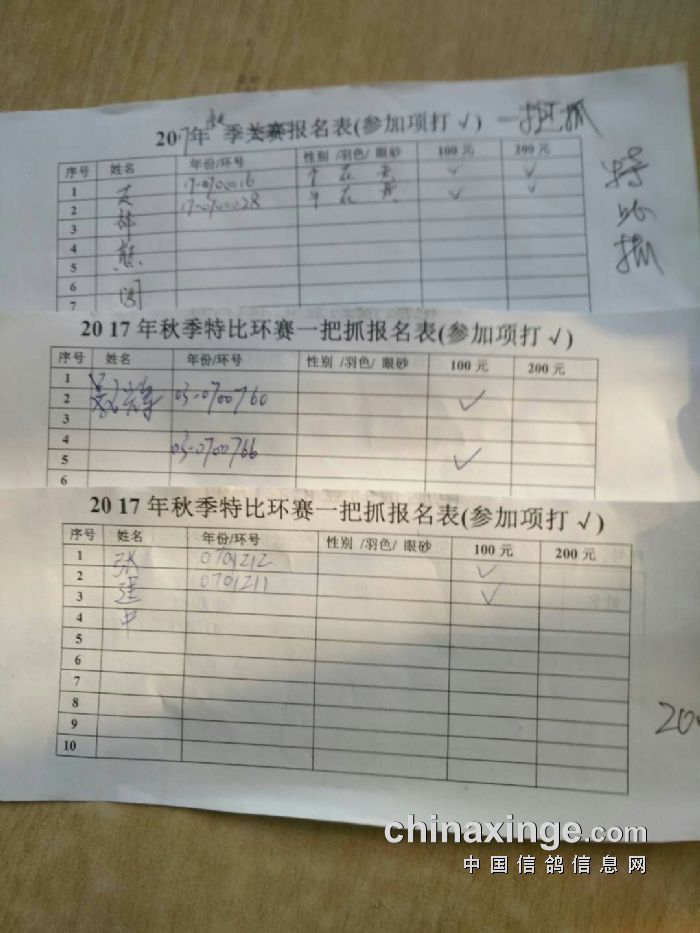 2017年秋季关赛报名表(参加项打√) 一把抓
序号 姓名 年份/环号 性别 /羽色/ 眼砂 100 元 200 元
1 17-0700016 ♀ 灰 黄 √ √
2 17-0700028 ♀ 灰 黄 √ √
3 林
4
5 熊
6
7
特
比
抓
20 17 年秋季特比环赛一把抓报名表(参加项打 √)
序号 姓名 年份/环号 性别 /羽色/ 眼砂 100 元 200 元
1
2 03-0700760 √
3
4
5 03-0700766 √
6
20 17 年秋季特比环赛一把抓报名表(参加项打 √)
序号 姓名 年份/环号 性别 /羽色/ 眼砂 100 元 200 元
1 张 0701212 √
2 建 0701211 √
3
4 中
5
6
7
8
9
10
200
chinaxinge.com
中国信鸽信息网